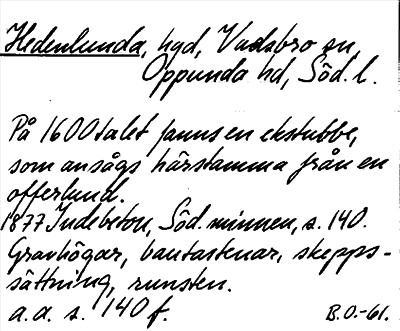 Hedenlunda, hgd, Vadsbro sn,
Oppunda hd, Söd. l.
På 1600talet fanns en ekstubbe,
som ansågs härstamma från en
offerlund.
1877 Indebetou, Söd. minnen, s. 140.
Gravhögar, bautastenar, skepps-
sättning, runsten.
a.a. s. 140 f.
B.O.-61.